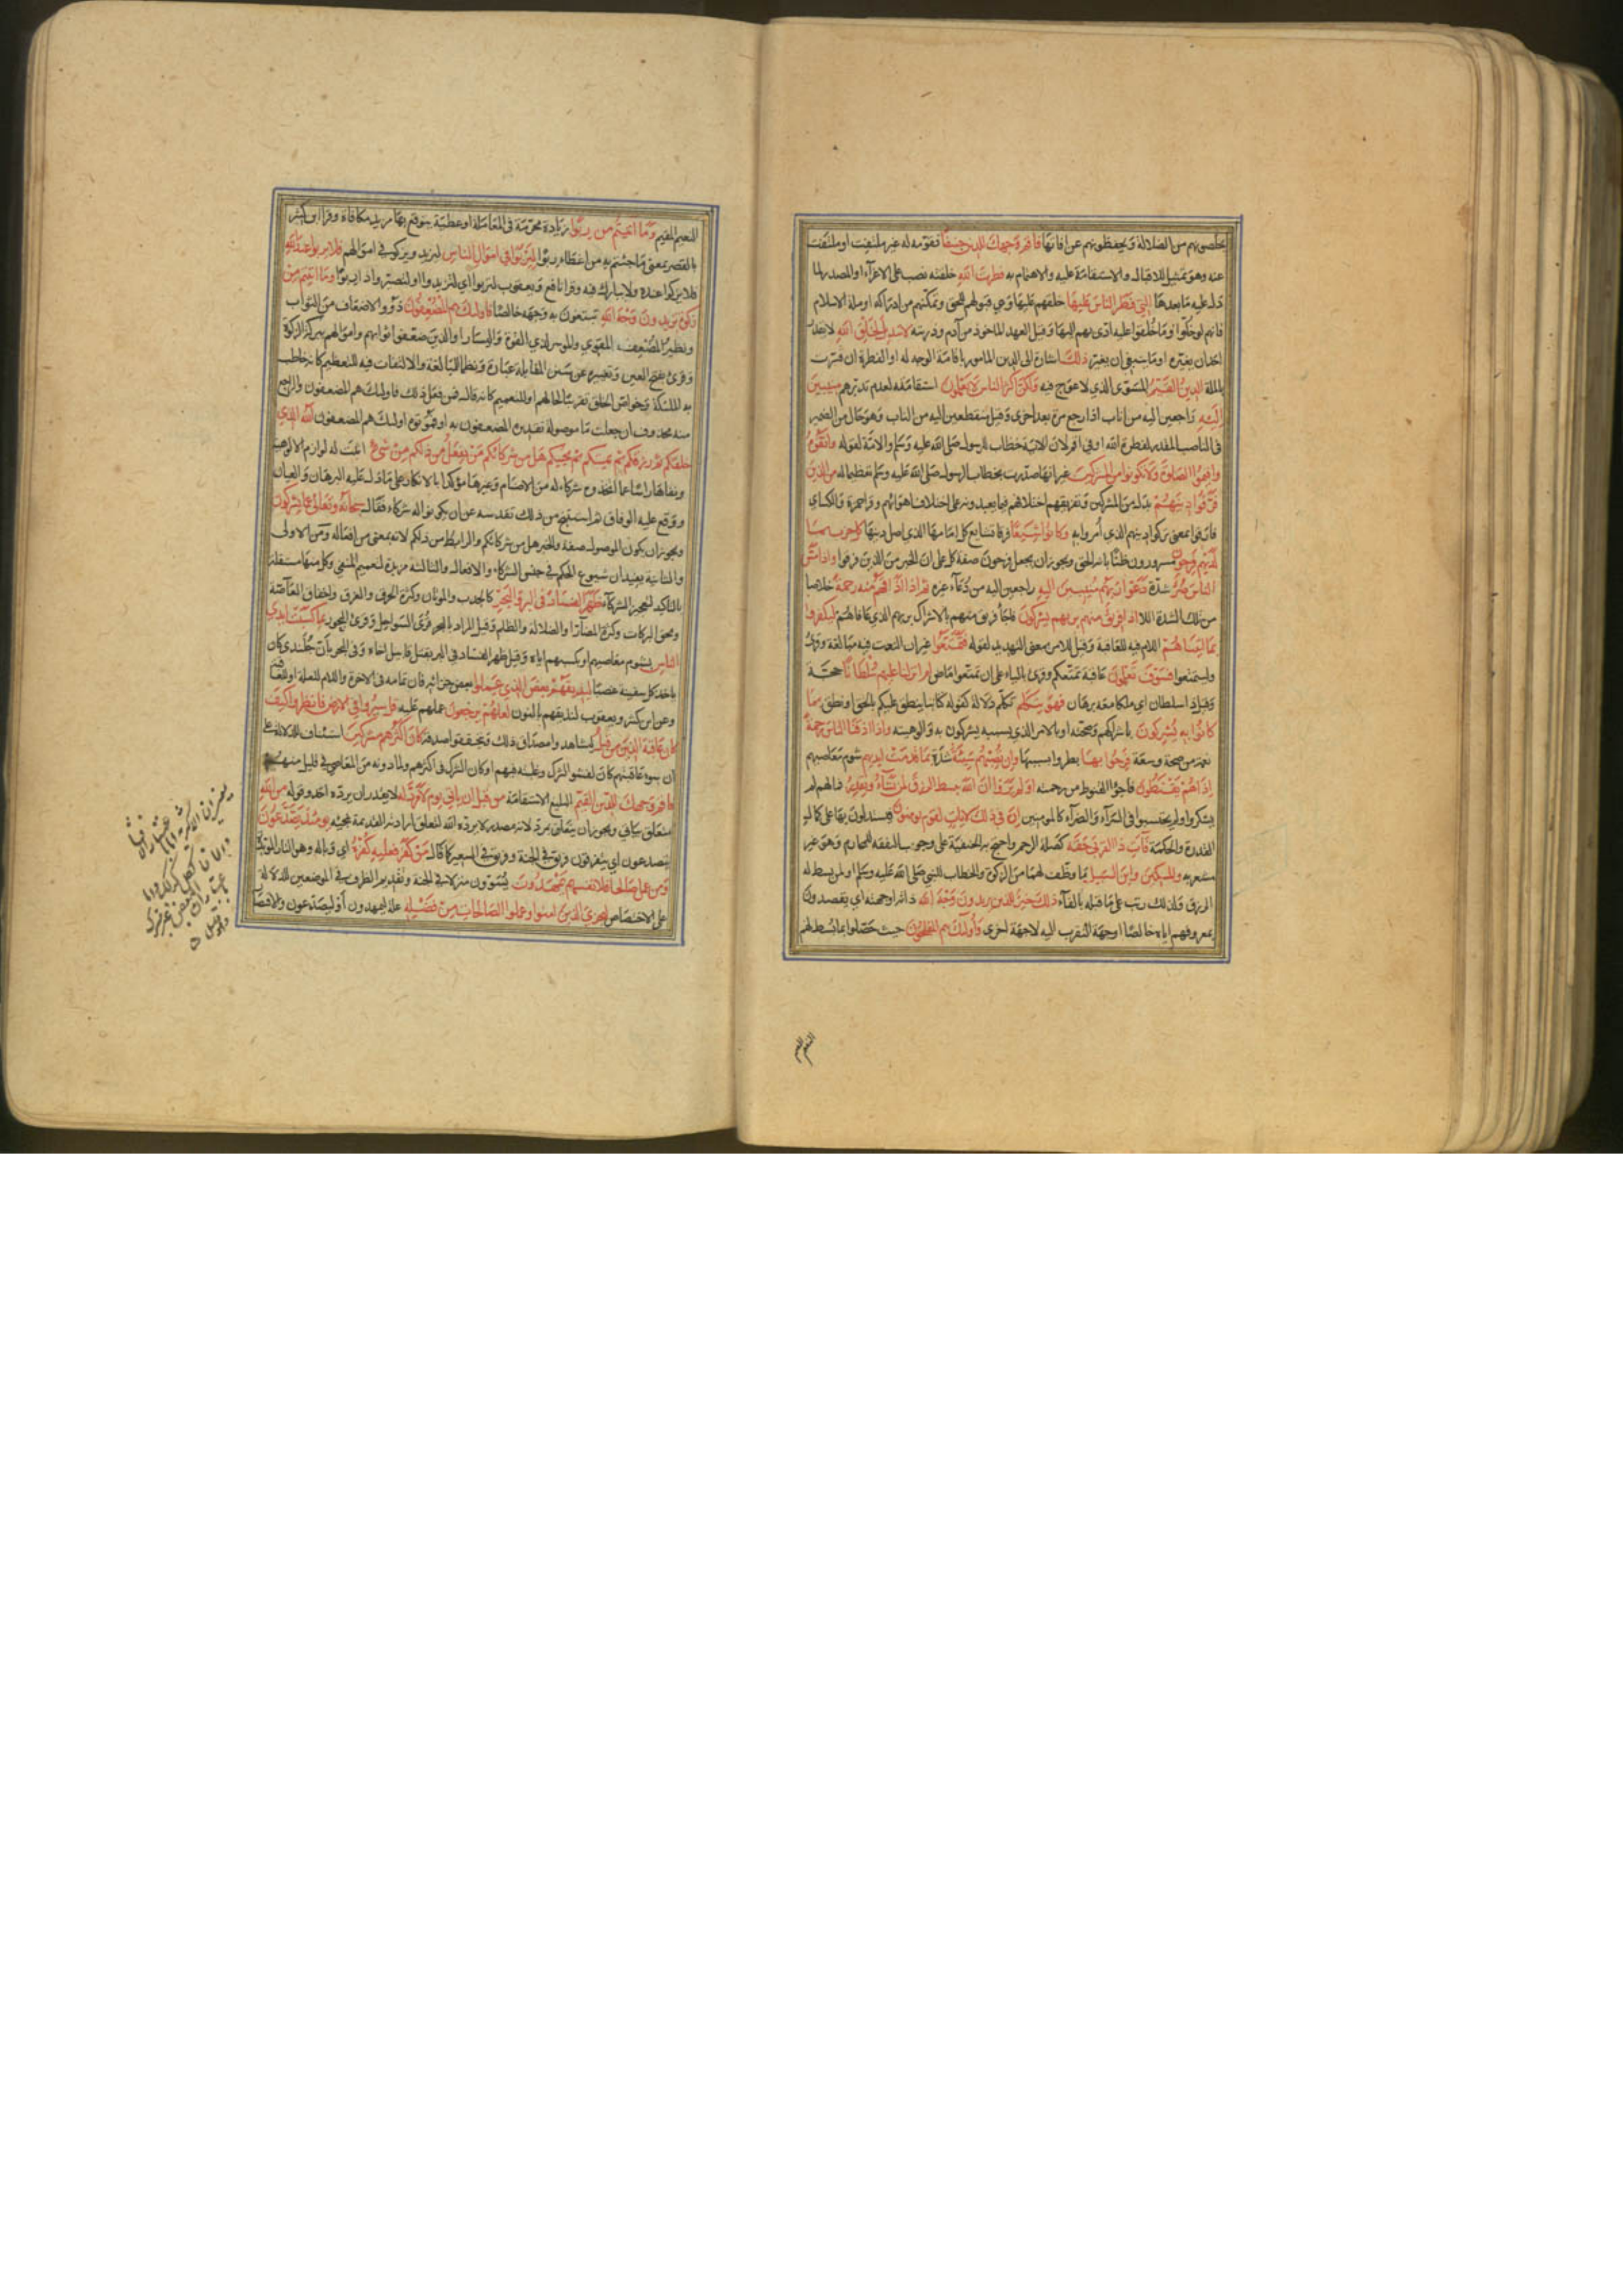 يخلصونهم من الضلالة ويحفظونهم عن افاتها فاقم وجهك للدين حنيفا فقومه له غير ملتفت او ملتفت
عنه وهو تمثيل للاقبال والاستقامة عليه والاهتمام به فطرت الله خلقته نصب على الاغراء او المصدر لما
دل عليه ما بعدها التي فطر الناس عليها خلقهم عليها وهي قبولهم للحق وتمكنهم من ادراكه او ملة الاسلام
فانهم لو خلوا وما خلقوا عليه ادى بهم اليها وقيل العهد الماخوذ من آدم وذريته لا تبديل لخلق الله لا يقدر
احد ان يغيره او ما ينبغي ان يغير ذلك اشارة الى الدين المامور باقامة الوجه له او الفطرة ان فسرت
بالملة الدين القيم المستوى الذي لا عوج فيه ولكن اكثر الناس لا يعلمون استقامته لعدم تدبرهم منيبين
اليه راجعين اليه من اناب اذا رجع مرة بعد اخرى وقيل منقطعين اليه من الناب وهو حال من الضمير
في الناصب المقدر لفطرة الله او في اقم لان الاية خطاب للرسول صلى الله عليه وسلم والامة لقوله واتقوه
واقيموا الصلوة ولا تكونوا من المشركين غير انها صدرت بخطاب الرسول صلى الله عليه وسلم تعظيما له من الذين
فرقوا دينهم بدل من المشركين وتفريقهم اختلافهم فيما يعبدونه على اختلاف اهوائهم وقرا حمزة والكساي
فارقوا بمعنى تركوا دينهم الذي امروا به وكانوا شيعا فرقا تشايع كل امامها الذي اصل دينها كل حزب بما
لديهم فرحون مسرورون ظنا بانه الحق ويجوز ان يجعل فرحون صفة كل على ان الخبر من الذين فرقوا واذا مس
الناس ضر شدة دعوا ربهم منيبين اليه راجعين اليه من دعاء غيره ثم اذا اذاقهم منه رحمة خلاصا
من تلك الشدة اذا فريق منهم بربهم يشركون فاجأ فريق منهم بالاشراك بربهم الذي عافاهم ليكفروا
بما اتيناهم اللام فيه للعاقبة وقيل للامر بمعنى التهديد لقوله فتمتعوا غير ان التفت فيه مبالغة وقرئ
وليتمتعوا فسوف تعلمون عاقبة تمتعكم وقرئ بالياء على ان تمتعوا ماض ام انزلنا عليهم سلطانا حجة
وقيل ذا سلطان اي ملكا معه برهان فهو يتكلم تكلم دلالة كقوله كتابنا ينطق عليكم بالحق او نطق بما
كانوا به يشركون باشراكهم وصحته او بالامر الذي بسببه يشركون به والوهيته واذا اذقنا الناس رحمة
نعمة من صحة وسعة فرحوا بها بطروا بسببها وان تصبهم سيئة شدة بما قدمت ايديهم بشوم معاصيهم
اذا هم يقنطون فاجؤا القنوط من رحمته اولم يروا ان الله يبسط الرزق لمن يشاء ويقدر فما لهم لم
يشكروا ولم يحتسبوا في السراء والضراء كالمومنين ان في ذلك لايات لقوم يومنون فيستدلون بها على كمال
القدرة والحكمة فآت ذا القربى حقه كصلة الرحم واحتج به الحنفية على وجوب النفقة للمحارم وهو غير
مشعر به والمسكين وابن السبيل ما وظف لهما من الزكوة والخطاب للنبي صلى الله عليه وسلم او لمن بسط له
الرزق ولذلك رتب على ما قبله بالفاء ذلك خير للذين يريدون وجه الله ذاته او جهته اي يقصدون
بمعروفهم اياه خالصا او جهة التقرب اليه لا جهة اخرى واولئك هم المفلحون حيث حصلوا بما بسط لهم
النعيم المقيم
النعيم المقيم وما اتيتم من ربوا زيادة محرمة في المعاملة او عطية يتوقع بها مزيد مكافاة وقرا ابن كثير
بالقصر بمعنى ما جئتم به من اعطاء ربوا ليربوا في اموال الناس ليزيد ويزكو في اموالهم فلا يربوا عند الله
فلا يزكوا عنده ولا يبارك فيه وقرا نافع ويعقوب لتربوا اي لتزيدوا او لتصيروا ذا ربوا وما اتيتم من
زكوة تريدون وجه الله تبتغون به وجهه خالصا فاولئك هم المضعفون ذوو الاضعاف من الثواب
ونظير المضعف المقوي والموسر لذي القوة واليسار او الذين ضعفوا ثوابهم واموالهم ببركة الزكوة
وقرئ بفتح العين وتغييره عن سنن المقابلة عبارة ونظما للمبالغة والالتفات فيه للتعظيم كانه خاطب
به الملئكة وخواص الخلق تعريفا لحالهم او للتعميم كانه قال فمن فعل ذلك فاولئك هم المضعفون والراجع
منه محذوف ان جعلت ما موصولة تقديره المضعفون به او فمؤتوه اولئك هم المضعفون الله الذي
خلقكم ثم رزقكم ثم يميتكم ثم يحييكم هل من شركائكم من يفعل من ذلكم من شيء اثبت له لوازم الالوهية
ونفاها راسا عما اتخذوه شركاء له من الاصنام وغيرها مؤكدا بالانكار على ما دل عليه البرهان والعيان
ووقع عليه الوفاق ثم استنتج من ذلك تقدسه عن ان يكونوا له شركاء فقال سبحانه وتعالى عما يشركون
ويجوز ان يكون الموصول صفة والخبر هل من شركائكم والرابط من ذلكم لانه بمعنى من افعاله ومن الاولى
والثانية يفيدان شيوع الحكم في جنس الشركاء والافعال والثالثة مزيدة لتعميم المنفي وكل منها مستقلة
بالتاكيد لتعجيز الشركاء ظهر الفساد في البر والبحر كالجدب والموتان وكثرة الحرق والغرق واخفاق الغاصة
ومحق البركات وكثرة المضار او الضلالة والظلم وقيل المراد بالبحر قرى السواحل وقرئ البحور بما كسبت ايدي
الناس بشوم معاصيهم او بكسبهم اياه وقيل ظهر الفساد في البر بقتل قابيل اخاه وفي البحر بان جلندى كان
ياخذ كل سفينة غصبا ليذيقهم بعض الذي عملوا بعض جزائه فان تمامه في الاخرة واللام للعلة او للعاقبة
وعن ابن كثير ويعقوب لنذيقهم بالنون لعلهم يرجعون عما هم عليه قل سيروا في الارض فانظروا كيف
كان عاقبة الذين من قبل لتشاهدوا مصداق ذلك وتحققوا صدقه كان اكثرهم مشركين استئناف للدلالة على
ان سوء عاقبتهم كان لفشو الشرك وغلبته فيهم او كان الشرك في اكثرهم ولما دونه من المعاصي في قليل منهم
فاقم وجهك للدين القيم البليغ الاستقامة من قبل ان ياتي يوم لا مرد له لا يقدر ان يرده احد وقوله من الله
متعلق بياتي ويجوز ان يتعلق بمرد لانه مصدر لا يرده الله لتعلق ارادته القديمة بمجيئه يومئذ يصدعون
يتصدعون اي يتفرقون فريق في الجنة وفريق في السعير كما قال من كفر فعليه كفره اي وباله وهو النار المؤبدة
ومن عمل صالحا فلانفسهم يمهدون يسوون منزلا في الجنة وتقديم الظرف في الموضعين للدلالة
على الاختصاص ليجزي الذين امنوا وعملوا الصالحات من فضله علة ليمهدون او ليصدعون والاقتصار